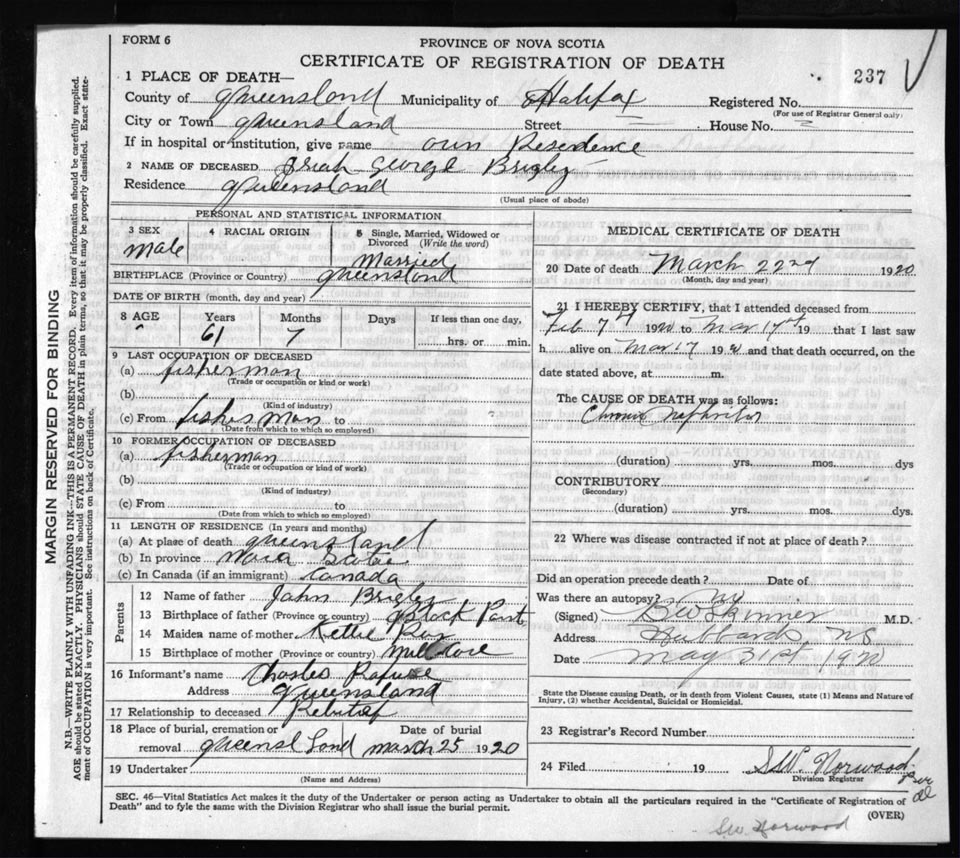 FORM 6
PROVINCE OF NOVA SCOTIA
CERTIFICATE OF REGISTRATION OF DEATH
237
1 PLACE OF DEATH—
County of Queensland Municipality of Halifax Registered No.
(For use of Registrar General only)
City or Town Queensland Street House No.
If in hospital or institution, give name own Resedence
2 NAME OF DECEASED George Brigley
Residence Queensland
(Usual place of abode)
PERSONAL AND STATISTICAL INFORMATION
3 SEX Male
4 RACIAL ORIGIN
5 Single, Married, Widowed or Divorced (Write the word) Married
BIRTHPLACE (Province or Country) Queensland
DATE OF BIRTH (month, day and year)
8 AGE Years 61 Months 7 Days If less than one day, hrs. or min.
9 LAST OCCUPATION OF DECEASED
(a) fisherman
(Trade or occupation or kind of work)
(b)
(Kind of industry)
(c) From fisherman to
(Date from which to which so employed)
10 FORMER OCCUPATION OF DECEASED
(a) fisherman
(Trade or occupation or kind of work)
(b)
(Kind of industry)
(c) From to
(Date from which to which so employed)
11 LENGTH OF RESIDENCE (In years and months)
(a) At place of death Queensland
(b) In province Nova Scotia
(c) In Canada (if an immigrant) Canada
Parents
12 Name of father John Brigley
13 Birthplace of father (Province or country)
14 Maiden name of mother
15 Birthplace of mother (Province or country)
16 Informant's name Charles
Address Queensland
17 Relationship to deceased
18 Place of burial, cremation or removal Queensland Date of burial March 25 1920
19 Undertaker
(Name and Address)
MEDICAL CERTIFICATE OF DEATH
20 Date of death March 22nd 1920
(Month, day and year)
21 I HEREBY CERTIFY, that I attended deceased from
Feb 7th 1920 to Mar 17th 19 that I last saw
h alive on Mar 17 19 20 and that death occurred, on the
date stated above, at m.
The CAUSE OF DEATH was as follows:
Chronic nephritis
(duration) yrs. mos. dys
CONTRIBUTORY
(Secondary)
(duration) yrs. mos. dys.
22 Where was disease contracted if not at place of death?
Did an operation precede death? Date of
Was there an autopsy? no
(Signed) Skinner M.D.
Address Hubbards, NS
Date May 31st 1920
State the Disease causing Death, or in death from Violent Causes, state (1) Means and Nature of Injury, (2) whether Accidental, Suicidal or Homicidal.
23 Registrar's Record Number
24 Filed 19 S.W. Norwood
Division Registrar
SEC. 46—Vital Statistics Act makes it the duty of the Undertaker or person acting as Undertaker to obtain all the particulars required in the "Certificate of Registration of
Death" and to fyle the same with the Division Registrar who shall issue the burial permit.
(OVER)
S.W. Norwood
MARGIN RESERVED FOR BINDING
N.B.—WRITE PLAINLY WITH UNFADING INK—THIS IS A PERMANENT RECORD. Every item of information should be carefully supplied.
AGE should be stated EXACTLY. PHYSICIANS should STATE CAUSE OF DEATH in plain terms, so that it may be properly classified. Exact state-
ment of OCCUPATION is very important. See instructions on back of Certificate.